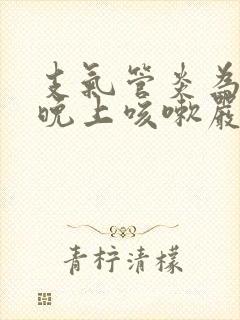 支氣管炎為
晚上咳嗽嚴
青柠清檬